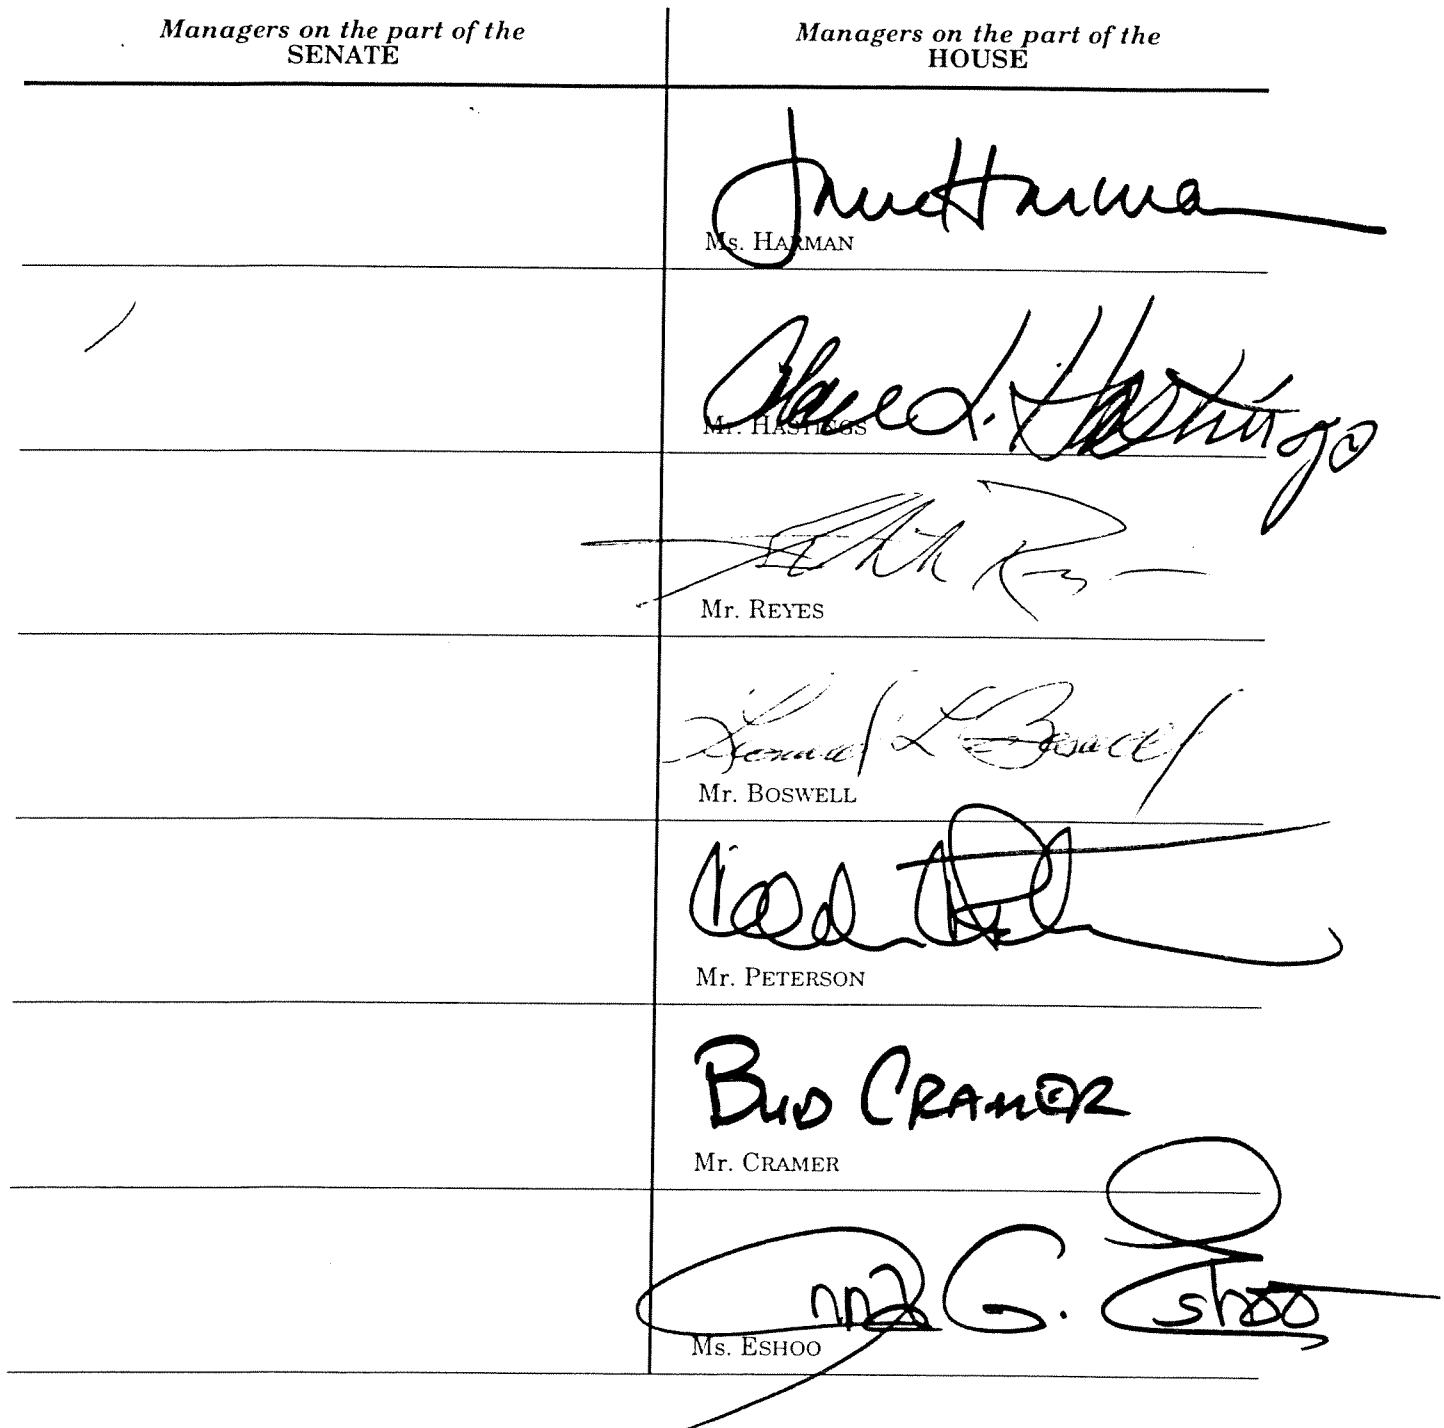 Managers on the part of the
SENATE
Managers on the part of the
HOUSE
Jane Harman
Ms. HARMAN
Alcee L. Hastings
Mr. HASTINGS
Mr. REYES
Leonard L Boswell
Mr. BOSWELL
Mr. PETERSON
BUD CRAMER
Mr. CRAMER
Anna G. Eshoo
Ms. ESHOO